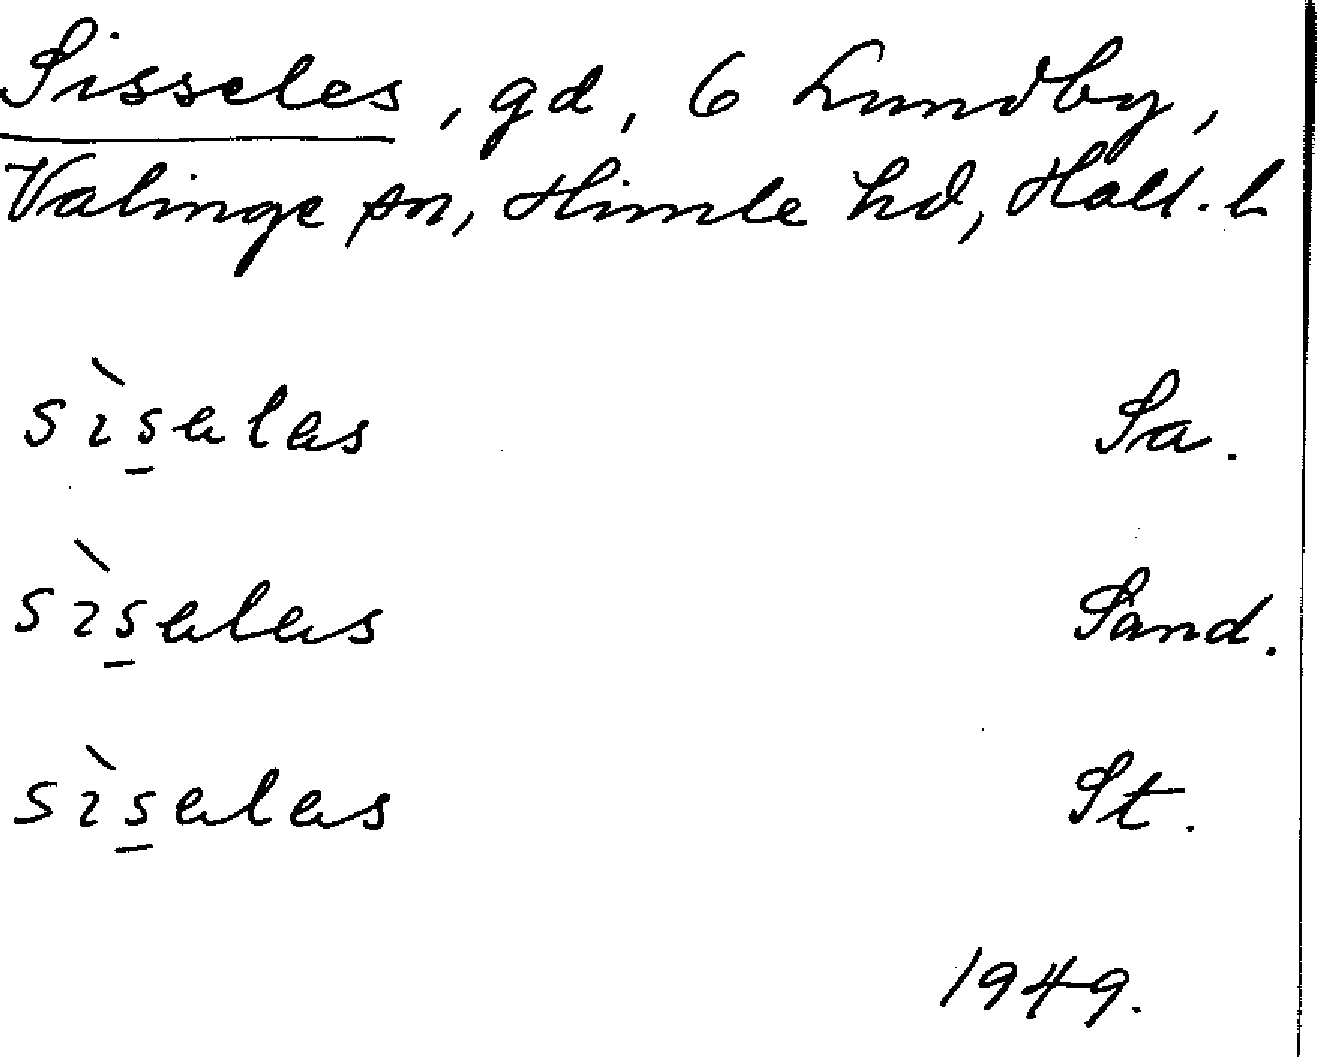 Sisseles, gd, 6 Lundby,
Valinge sn, Himle hd, Hall. l
sìs̱elas Sa.
sìs̱eles Sand.
sìs̱eles St.
1949.